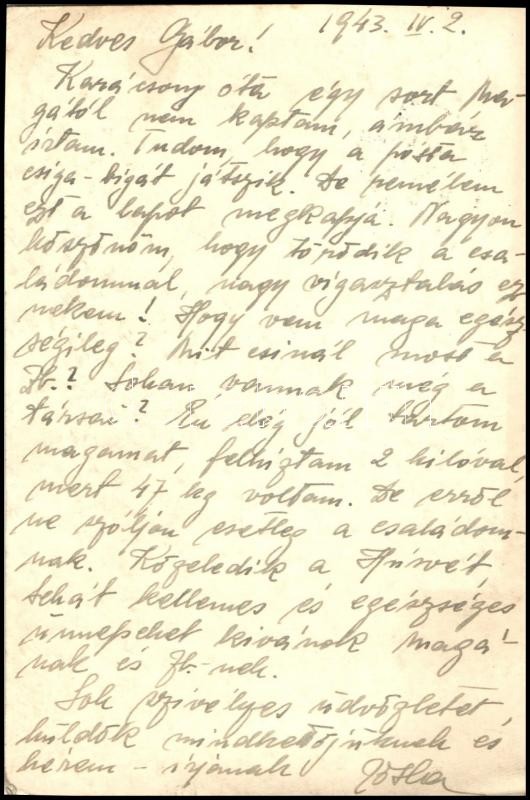 1943. IV. 2.
Kedves Gábor!
Karácsony óta egy sort Ma-
gától nem kaptam, ámbár
írtam. Tudom, hogy a posta
csiga-bigát játszik. De remélem
ezt a lapot megkapja. Nagyon
köszönöm, hogy törődik a csa-
ládommal, nagy vigasztalás ez
nekem! Hogy van maga egész-
ségileg? Mit csinál most a
Zb.? Sokan vannak még a
társai? Én elég jól tartom
magamat, felhíztam 2 kilóval,
mert 47 kg voltam. De erről
ne szóljon esetleg a családom-
nak. Közeledik a Húsvét,
tehát kellemes és egészséges
ünnepeket kívánok magá-
nak és Zb.-nek.
Sok szívélyes üdvözletet
küldök mindkettőjüknek és
kérem - írjanak